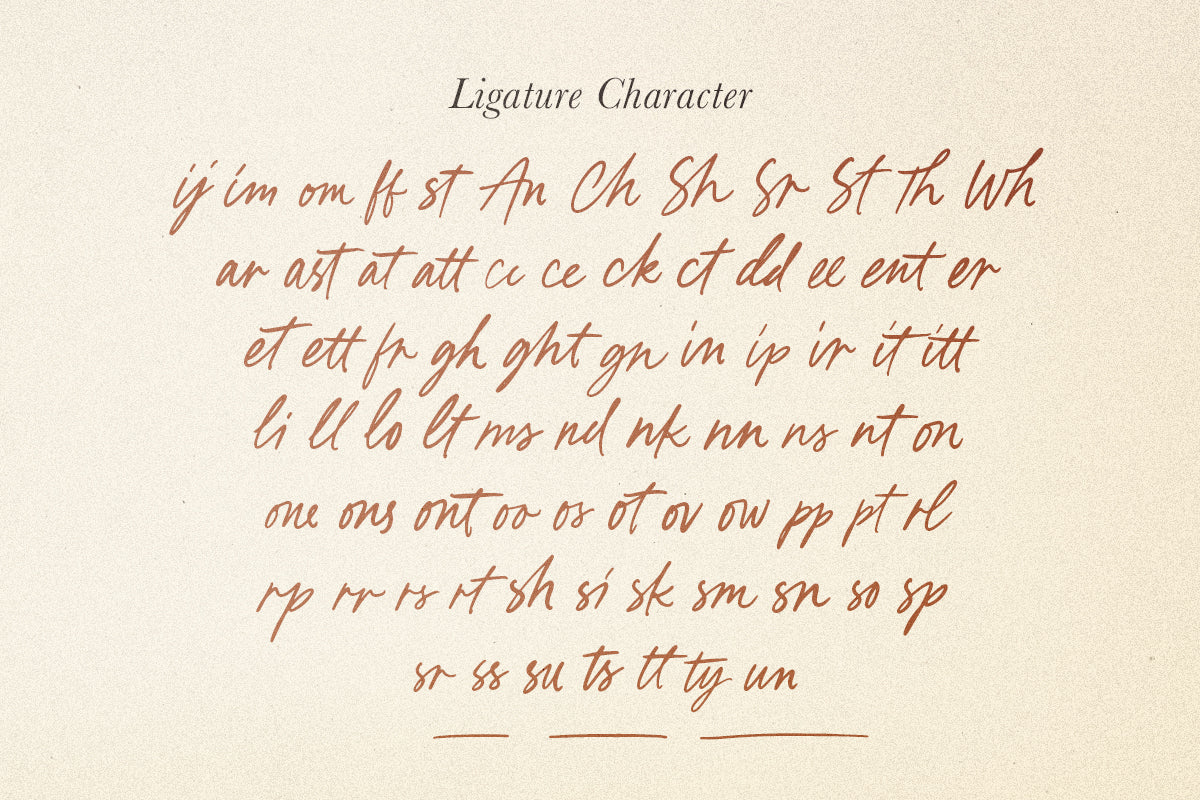 Ligature Character
ij im om ff st An Ch Sh Sr St Th Wh
ar ast at att cc ce ck ct dd ee ent er
et ett fr gh ght gn in ip ir it itt
li ll lo lt ms nd nk nn ns nt on
one ons ont oo os ot ov ow pp pt rl
rp rr rs rt sh si sk sm sn so sp
sr ss su ts tt ty un